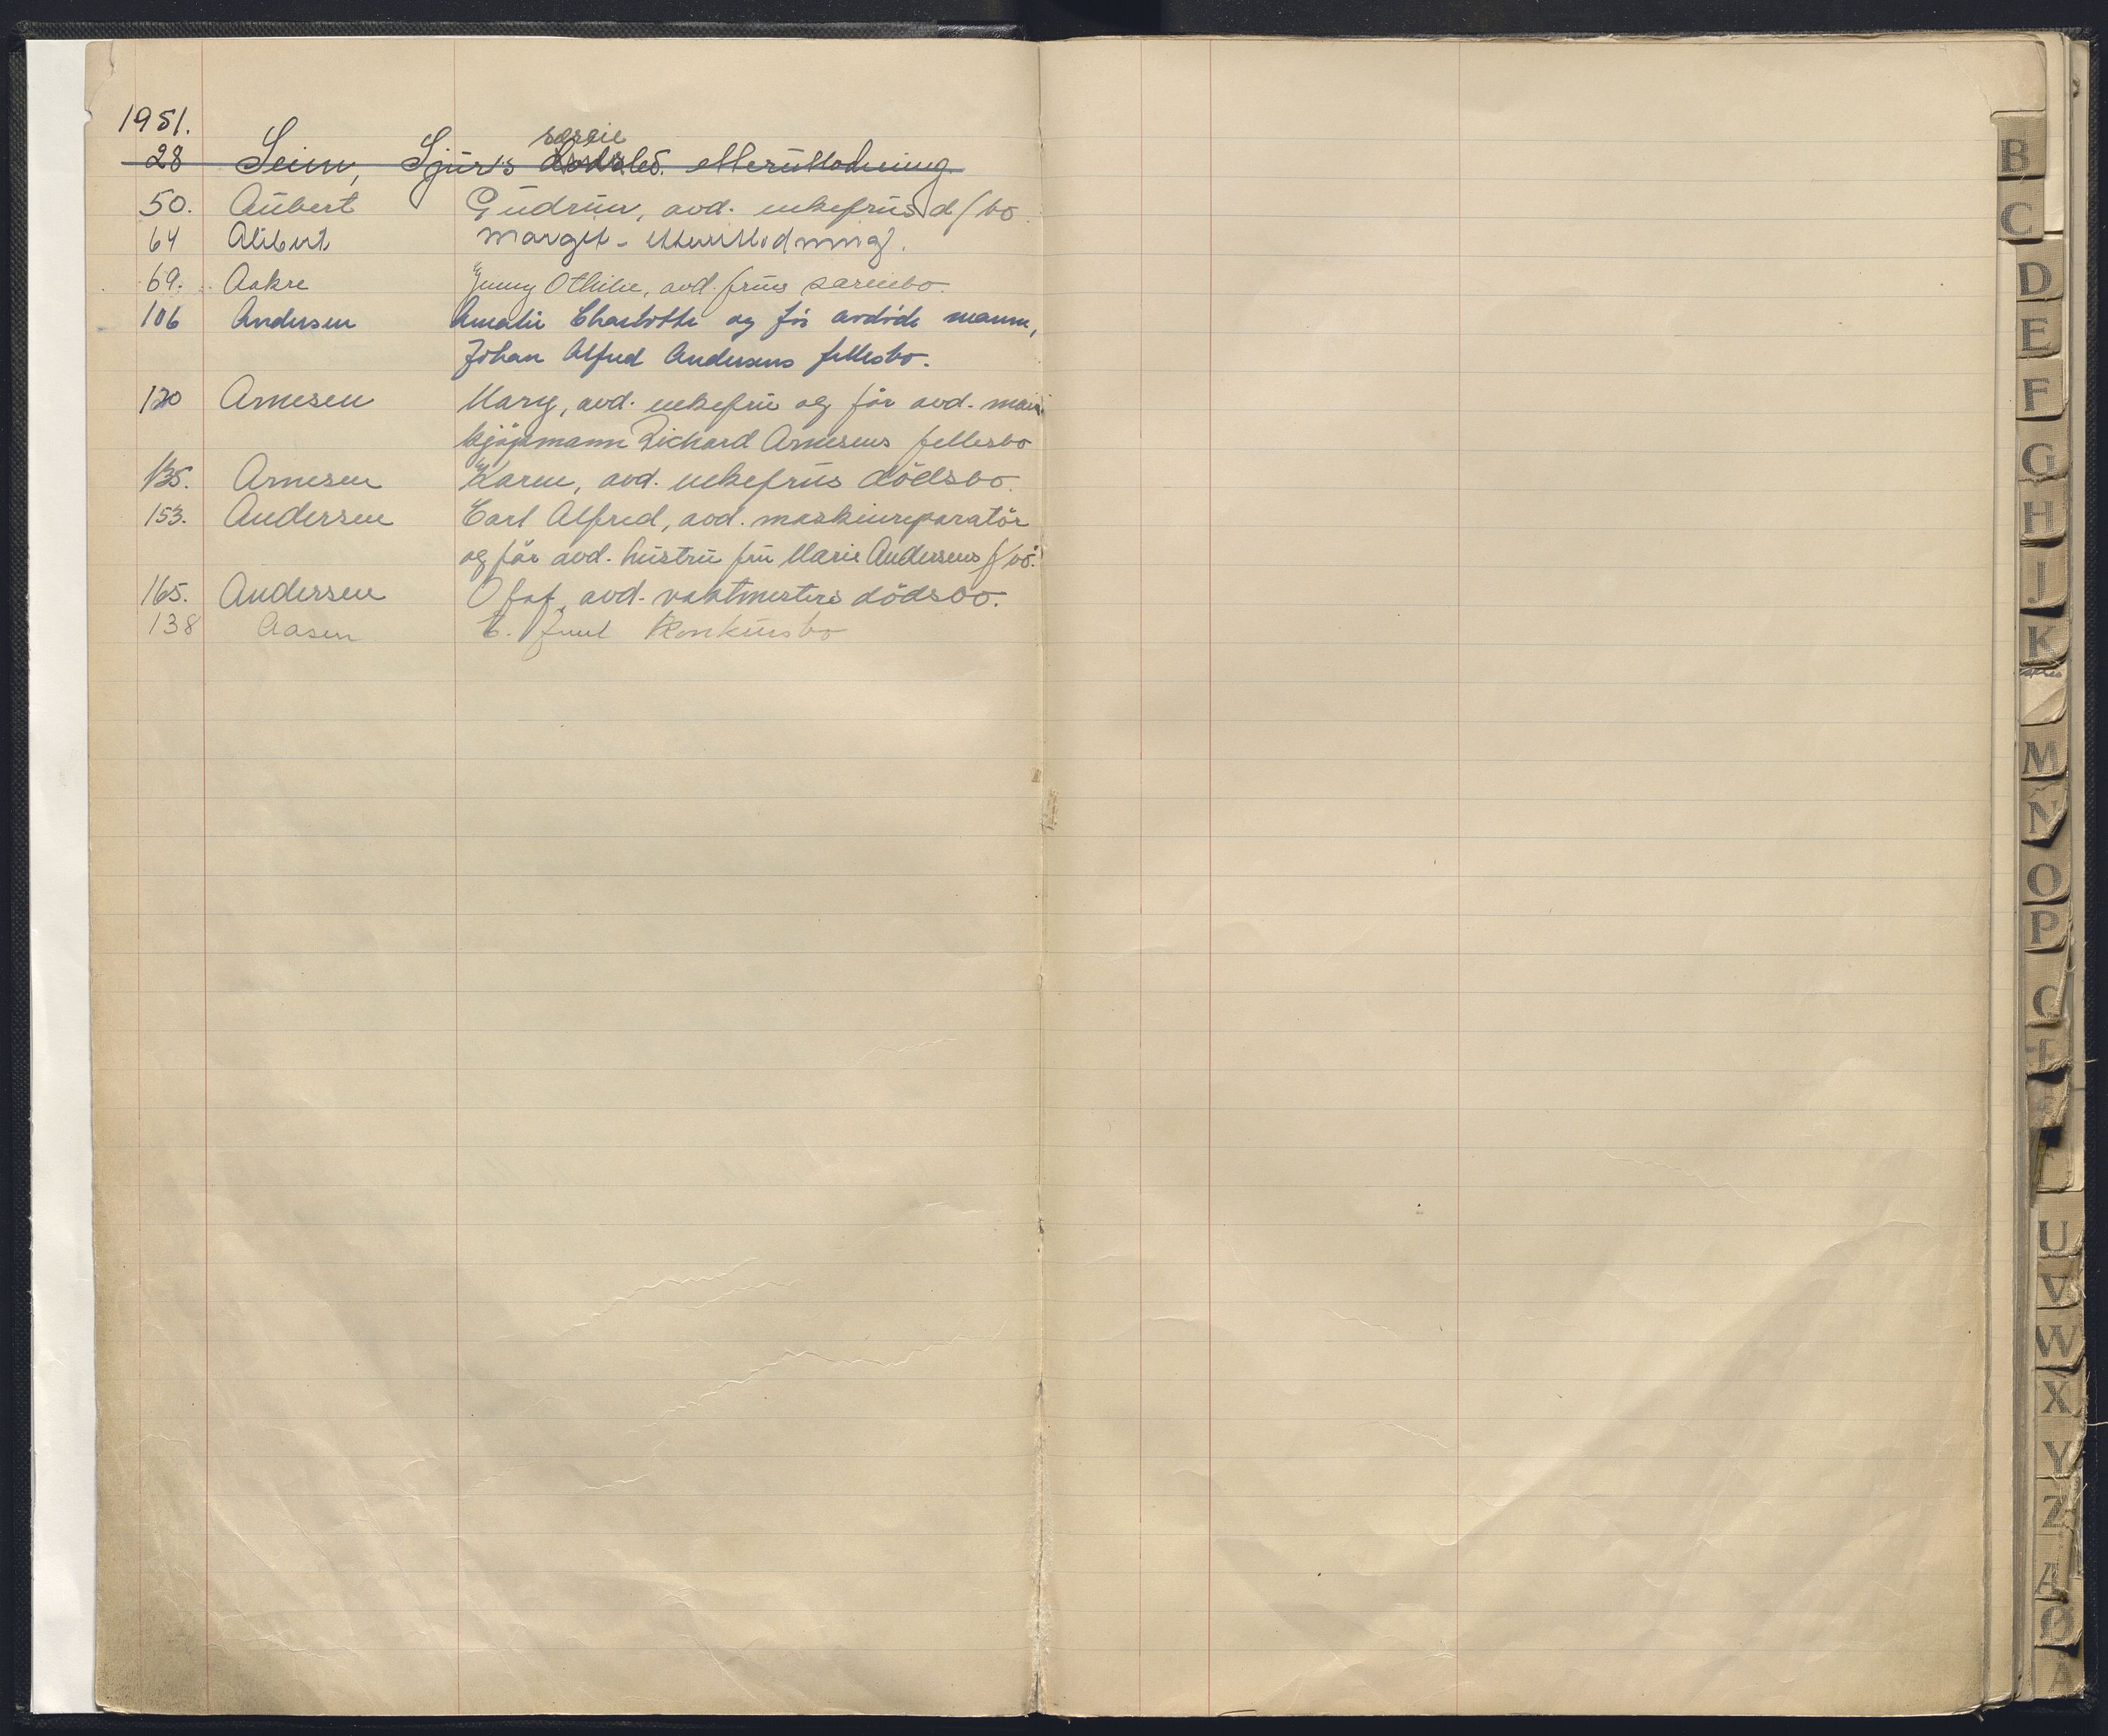 1951.
særeie
28 Seim, Sjur's etterutlodning
50. Aubert Gudrun, avd. enkefrus d/bo
64 Alibert Margit - etterutlodning.
69. Aakre Jenny Othilie, avd. frues særeiebo.
106 Andersen Amalie Charlotte og før avdøde mann,
Johan Alfred Andersens fellesbo.
120 Arnesen Mary, avd. enkefru og før avd. mann
kjøpmann Rickard Arnesens fellesbo
135. Arnesen Karen, avd. enkefrus dødsbo.
153. Andersen Carl Alfred, avd. maskinreparatør
og før avd. hustru fru Marie Andersens f/bo.
165. Andersen Olaf, avd. vaktmesters dødsbo.
138 Aasen E. Juul Konkursbo
B
C
D
E
F
G
H
J
K
M
N
O
P
U
V
W
X
Y
Z
Ø